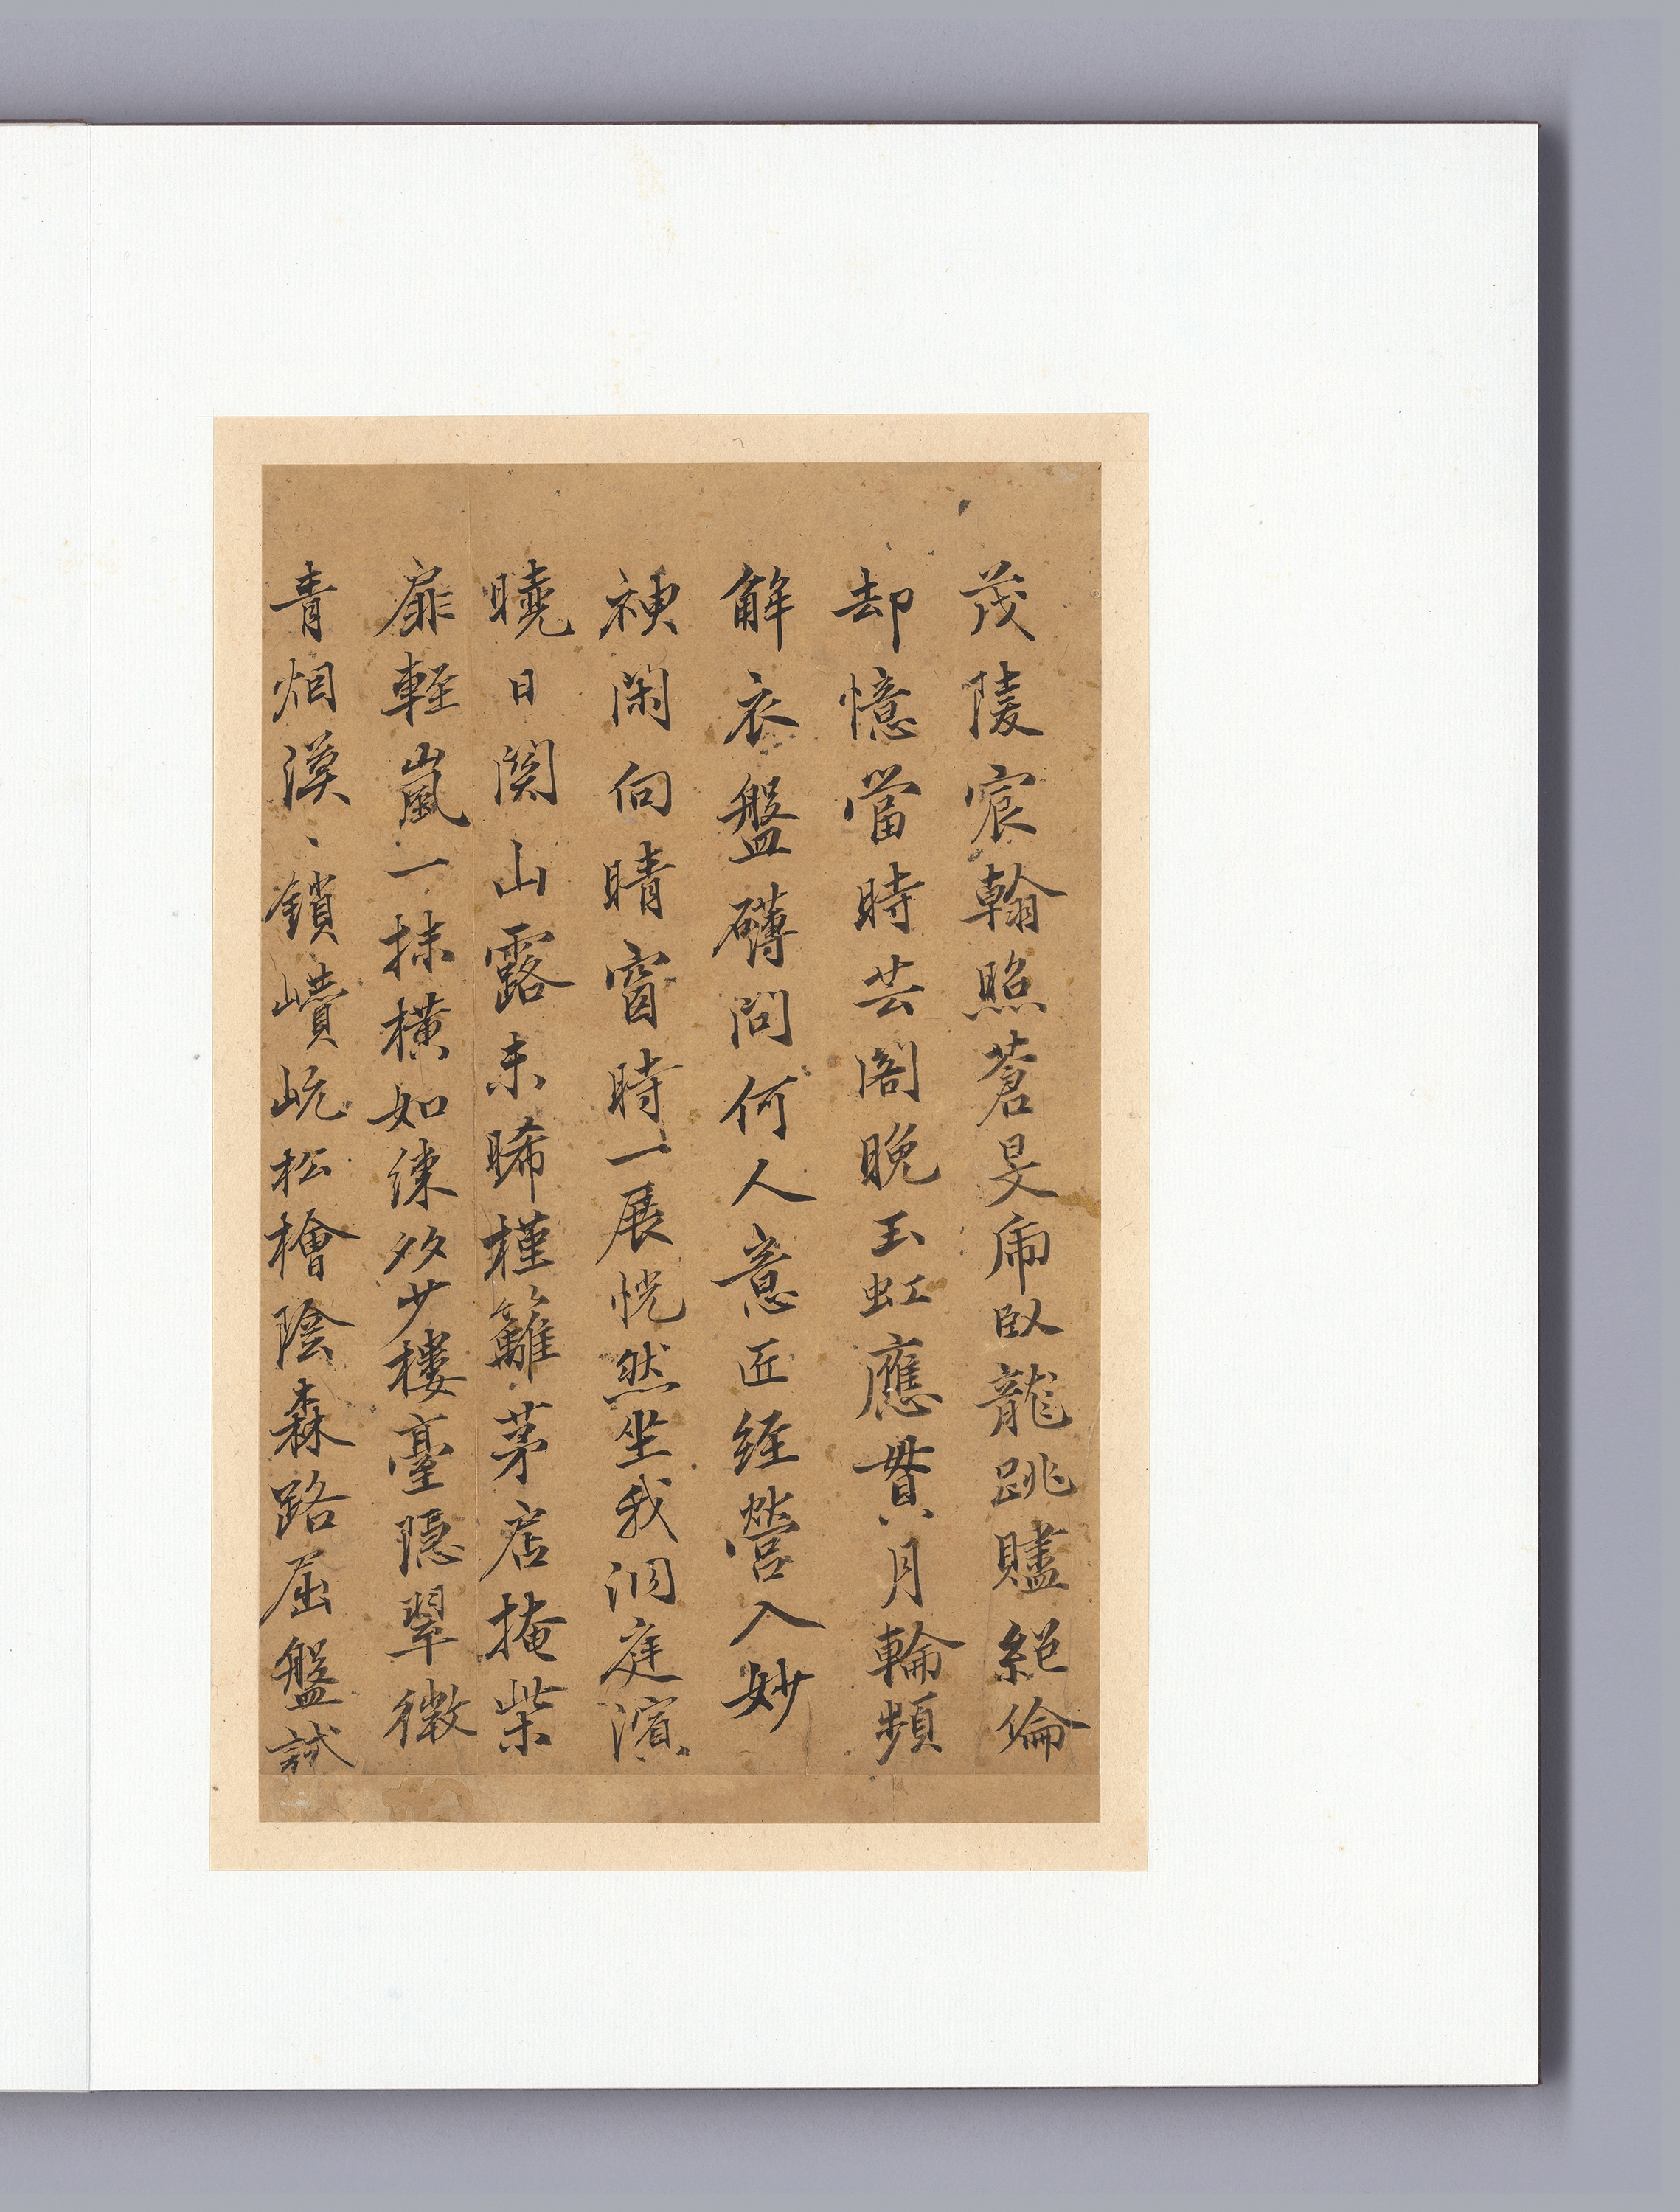 茂陵宸翰照蒼旻虎臥龍跳贐絕倫
却憶當時芸閣晚玉虹應貫月輪頻
解衣盤礴問何人意匠經營入妙
神閑向晴窗時一展恍然坐我洞庭濱
曉日関山露未晞槿籬茅店掩柴
扉輕嵐一抹橫如練多少樓臺隱翠微
青烟漠、鎖巑岏松檜陰森路屈盤試